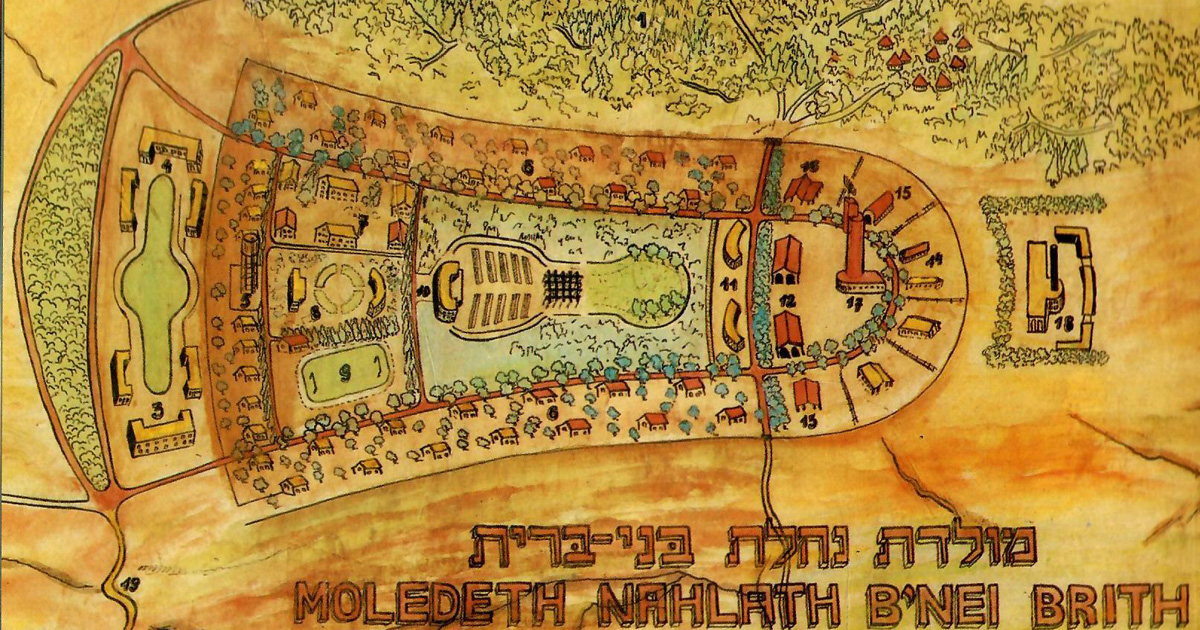 1
4
16
15
6
7
14
5
8
10
11
12
17
18
9
3
6
13
19
מולדת נחלת בני-ברית
MOLEDETH NAHLATH B'NEI BRITH